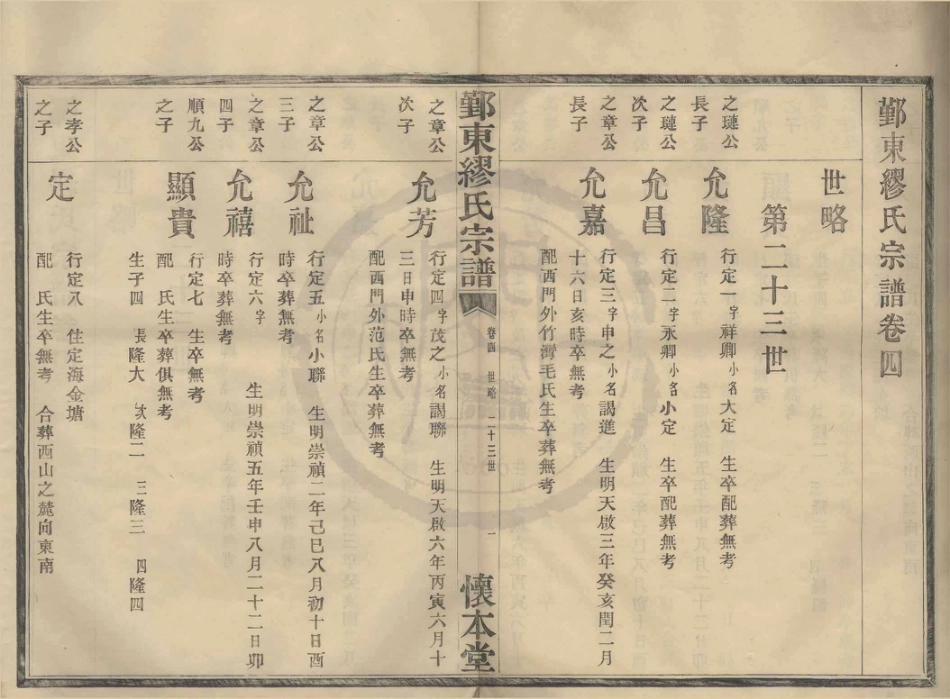 鄞東繆氏宗譜卷四
世略
第二十三世
之璉公
長子
允隆
行定一 字祥卿 小名大定 生卒配葬無考
之璉公
次子
允昌
行定二 字永卿 小名小定 生卒配葬無考
之章公
長子
允嘉
行定三 字申之 小名謁進 生明天啟三年癸亥閏二月
十六日亥時卒無考
配西門外竹灣毛氏生卒葬無考
鄞東繆氏宗譜
卷四 世略 二十三世 一
懷本堂
之章公
次子
允芳
行定四 字茂之 小名謁聯 生明天啟六年丙寅六月十
三日申時卒無考
配西門外范氏生卒葬無考
之章公
三子
允祉
行定五 小名小聯 生明崇禎二年己巳八月初十日酉
時卒葬無考
之章公
四子
允禧
行定六 字 生明崇禎五年壬申八月二十二日卯
時卒葬無考
順九公
之子
顯貴
行定七 生卒無考
配 氏生卒葬俱無考
生子四 長隆大 次隆二 三隆三 四隆四
之孝公
之子
定
行定八 住定海金塘
配 氏生卒無考 合葬西山之麓向東南